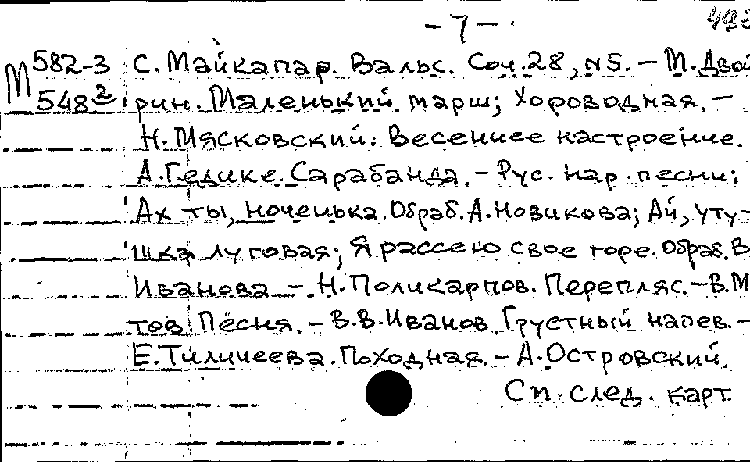 - 7 -
М 582-3
548 2
С. Майкапар. Вальс. Соч. 28, №5. - М. Двой
рин. Маленький марш; Хороводная. -
Н. Мясковский. Весеннее настроение.
А. Гедике. Сарабанда. - Рус. нар. песни:
Ах ты, ноченька. Обраб. А. Новикова; Ай, уту-
шка луговая; Я рассею свое горе. Обраб. В.
Иванова. - Н. Поликарпов. Перепляс. - В. М
тов Песня. - В.В. Иванов. Грустный напев. -
Е. Тиличеева. Походная. - А. Островский.
См. след. карт.